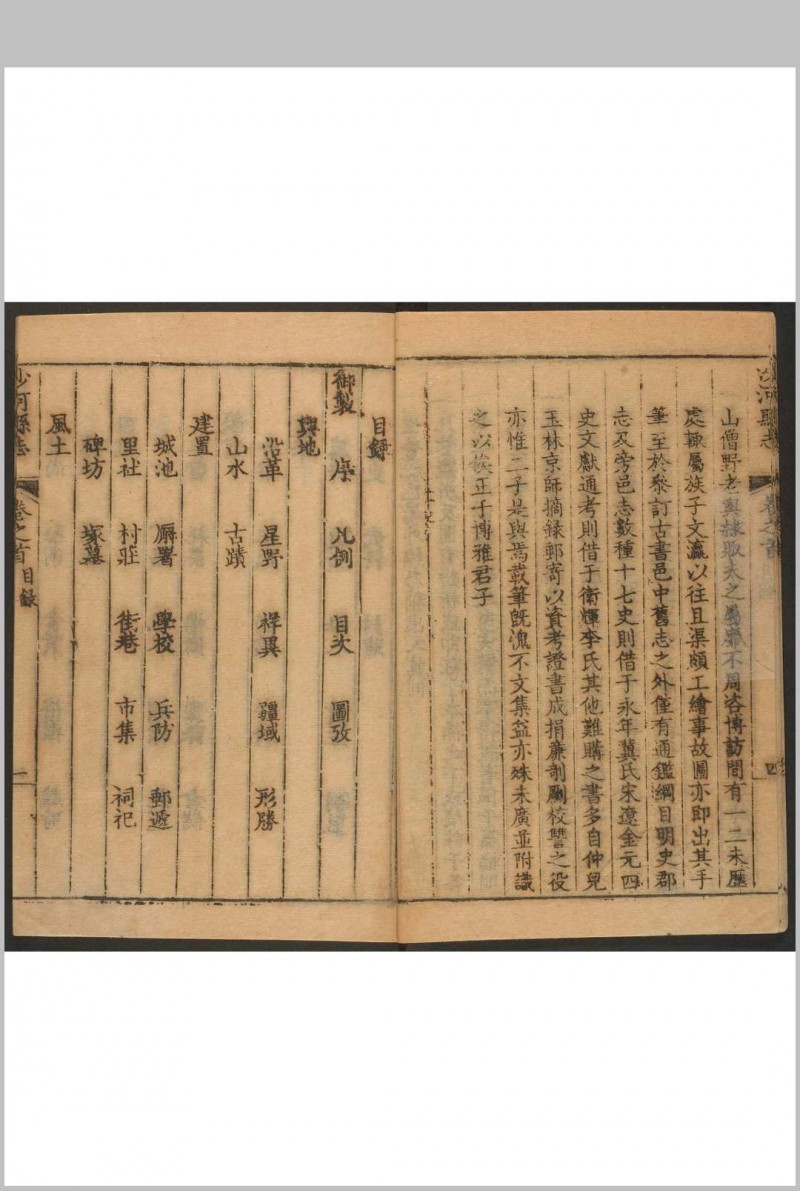 沙河縣志
卷之首
四
山僧野老輿隸販夫之屬靡不周咨博訪間有一二未歷
處輒屬族子文瀛以往且渠頗工繪事故圖亦即出其手
筆至於參訂古書邑中舊志之外僅有通鑑綱目明史郡
志及旁邑志數種十七史則借于永年冀氏宋遼金元四
史文獻通考則借于衛輝李氏其他難購之書多自仲兒
玉林京師摘録郵寄以資考證書成捐廉剞劂校讐之役
亦惟二子是與焉載筆旣滟不文集益亦殊未廣並附識
之以俟正于博雅君子
目録
御製 序 凡例 目次 圖攷
輿地
沿革 星野 祥異 疆域 形勝
山水 古蹟
建置
城池 廨署 學校 兵防 郵遞
里社 村莊 街巷 市集 祠祀
碑坊 塚墓
風土
沙河縣志
卷之首 目録
一